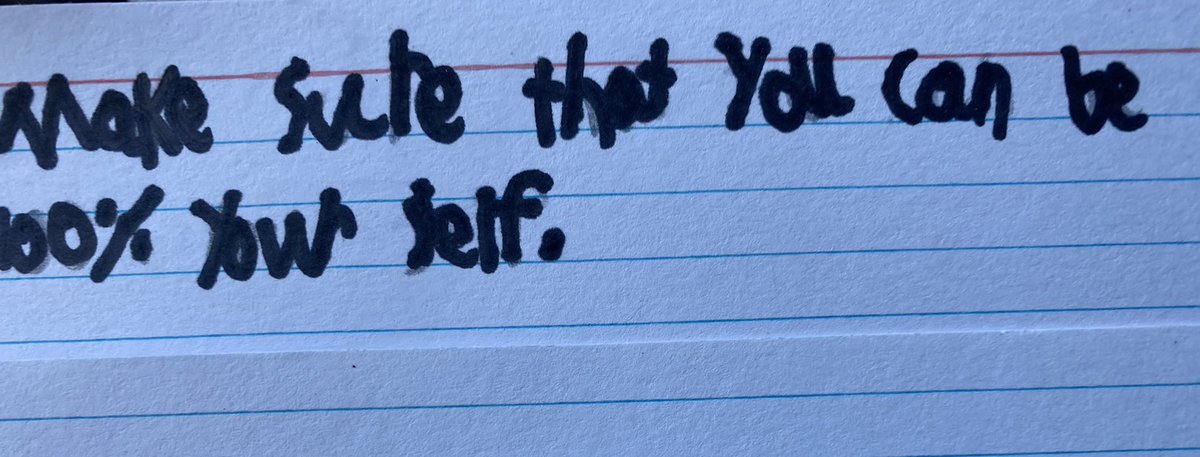 Make sure that you can be
100% your self.